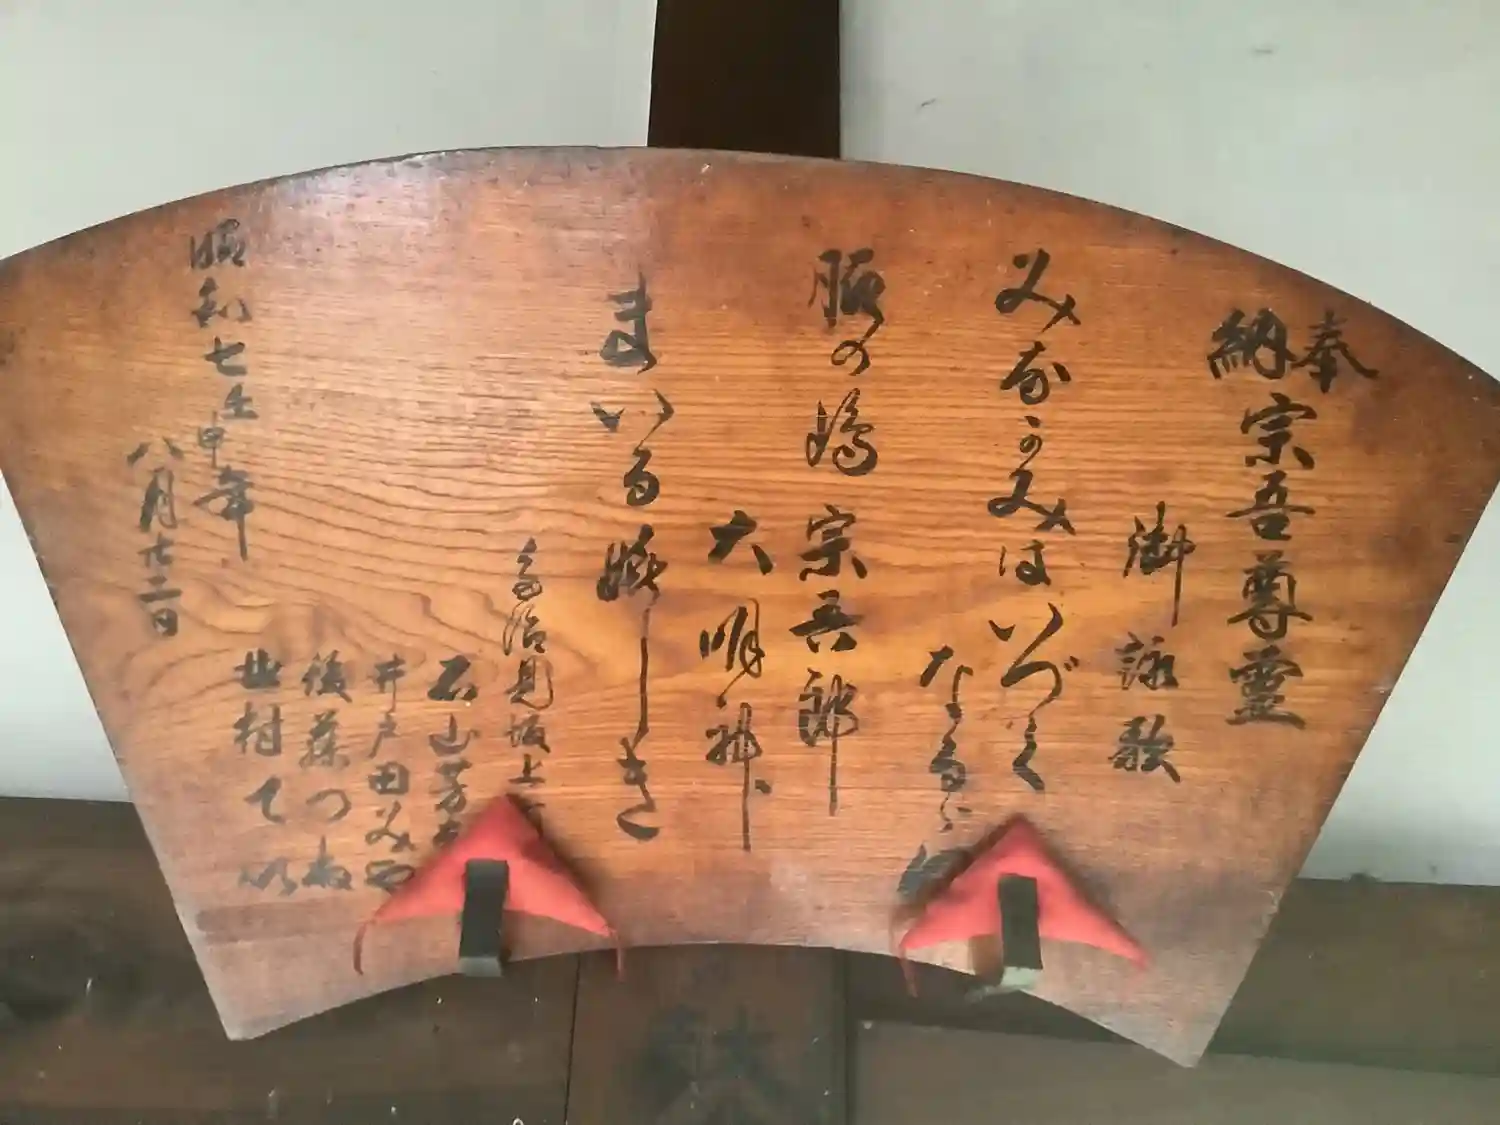 奉納 宗吾尊霊
御詠歌
みなかみはいづく
なる
の嶋 宗吾郎
大明神
まいる嬉しき
多治見坂上
石山芳
井戸田みや
後藤つね
村て以
昭和七壬申年
八月廿二日